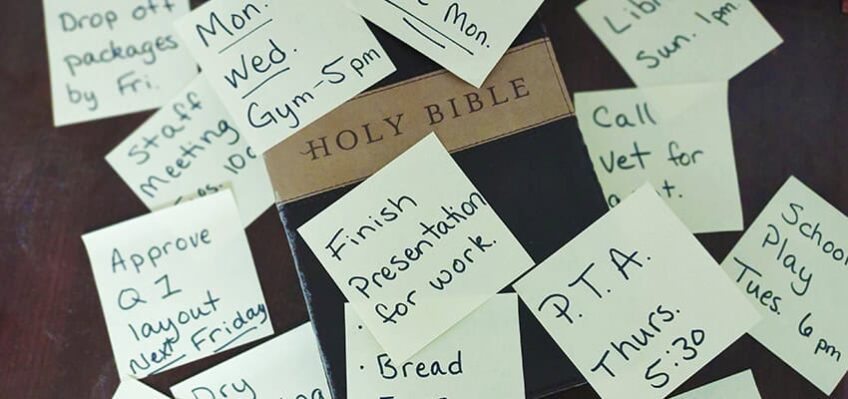 Drop off
packages
by Fri.
Mon.
Wed.
Gym - 5pm
Mon.
Sun. 1pm
Staff
Meeting
HOLY BIBLE
Call
Vet for
Finish
Presentation
for work.
Approve
Q1
layout
Next Friday
P.T.A.
Thurs.
5:30
School
Play
Tues. 6pm
Dry
· Bread